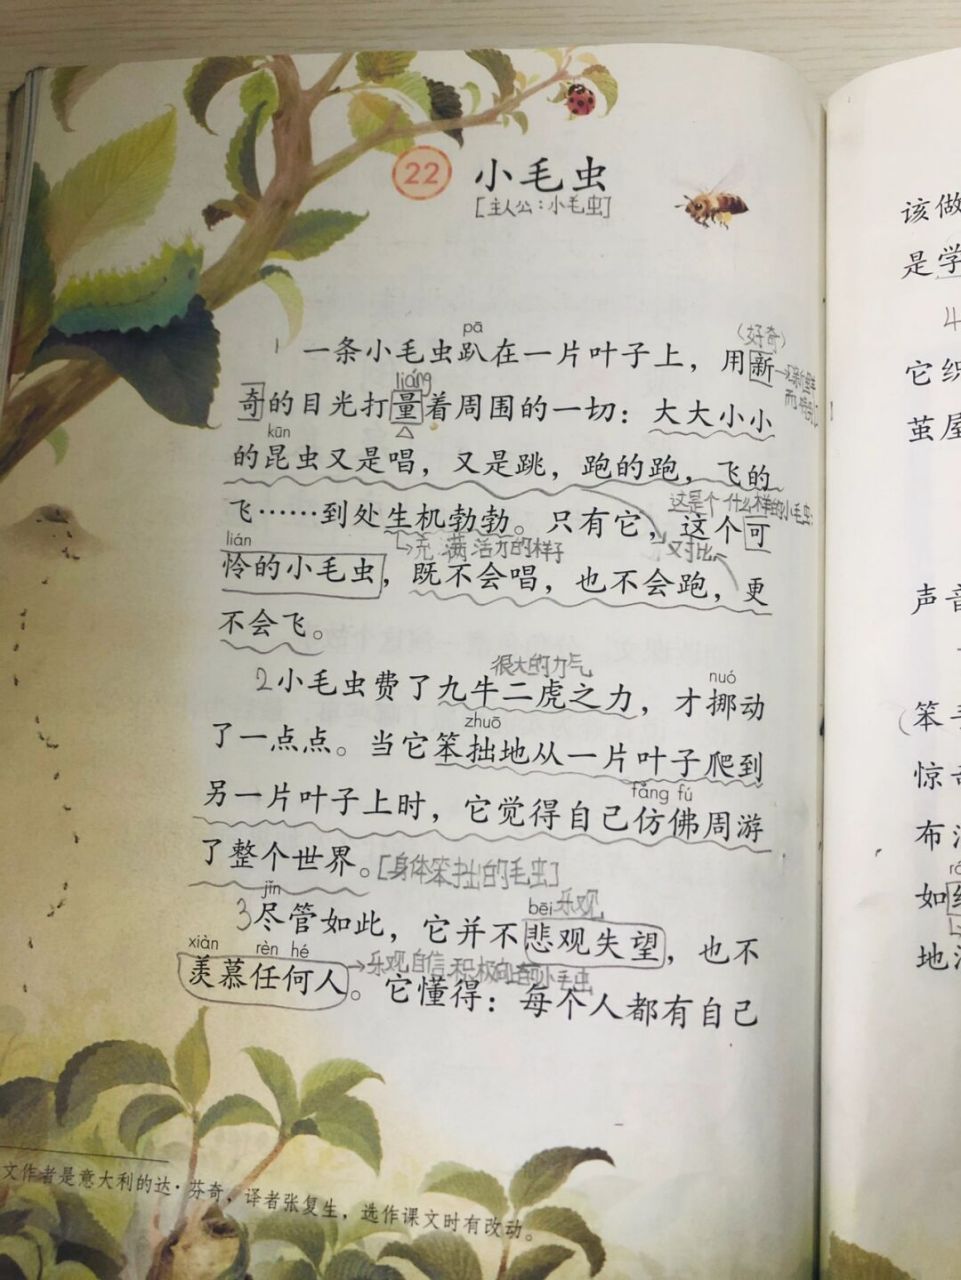 22 小毛虫
[主人公：小毛虫]
pā
（好奇）
1 一条小毛虫趴在一片叶子上，用新
liáng
奇的目光打量着周围的一切：大大小小
kūn
的昆虫又是唱，又是跳，跑的跑，飞的
这是个什么样的小毛虫
飞……到处生机勃勃。只有它，这个可
lián
充满活力的样子
对比
怜的小毛虫，既不会唱，也不会跑，更
不会飞。
很大的力气
nuó
2小毛虫费了九牛二虎之力，才挪动
zhuō
了一点点。当它笨拙地从一片叶子爬到
fǎng fú
另一片叶子上时，它觉得自己仿佛周游
了整个世界。[身体笨拙的毛虫]
jǐn
bēi 乐观
3尽管如此，它并不悲观失望，也不
xiàn rèn hé
乐观自信积极向上的小毛虫
羡慕任何人。它懂得：每个人都有自己
文作者是意大利的达·芬奇，译者张复生，选作课文时有改动。
该做
是学
4
它织
茧屋
声音
（笨手
惊奇
如